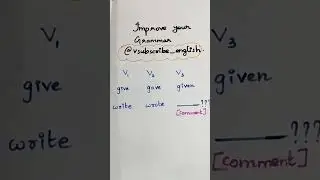 Improve your
Grammar
@vsubscribe_english
V1 V2 V3
give gave given
write wrote ____???
[comment]
V1
give
write
V3
given
____???
[comment]